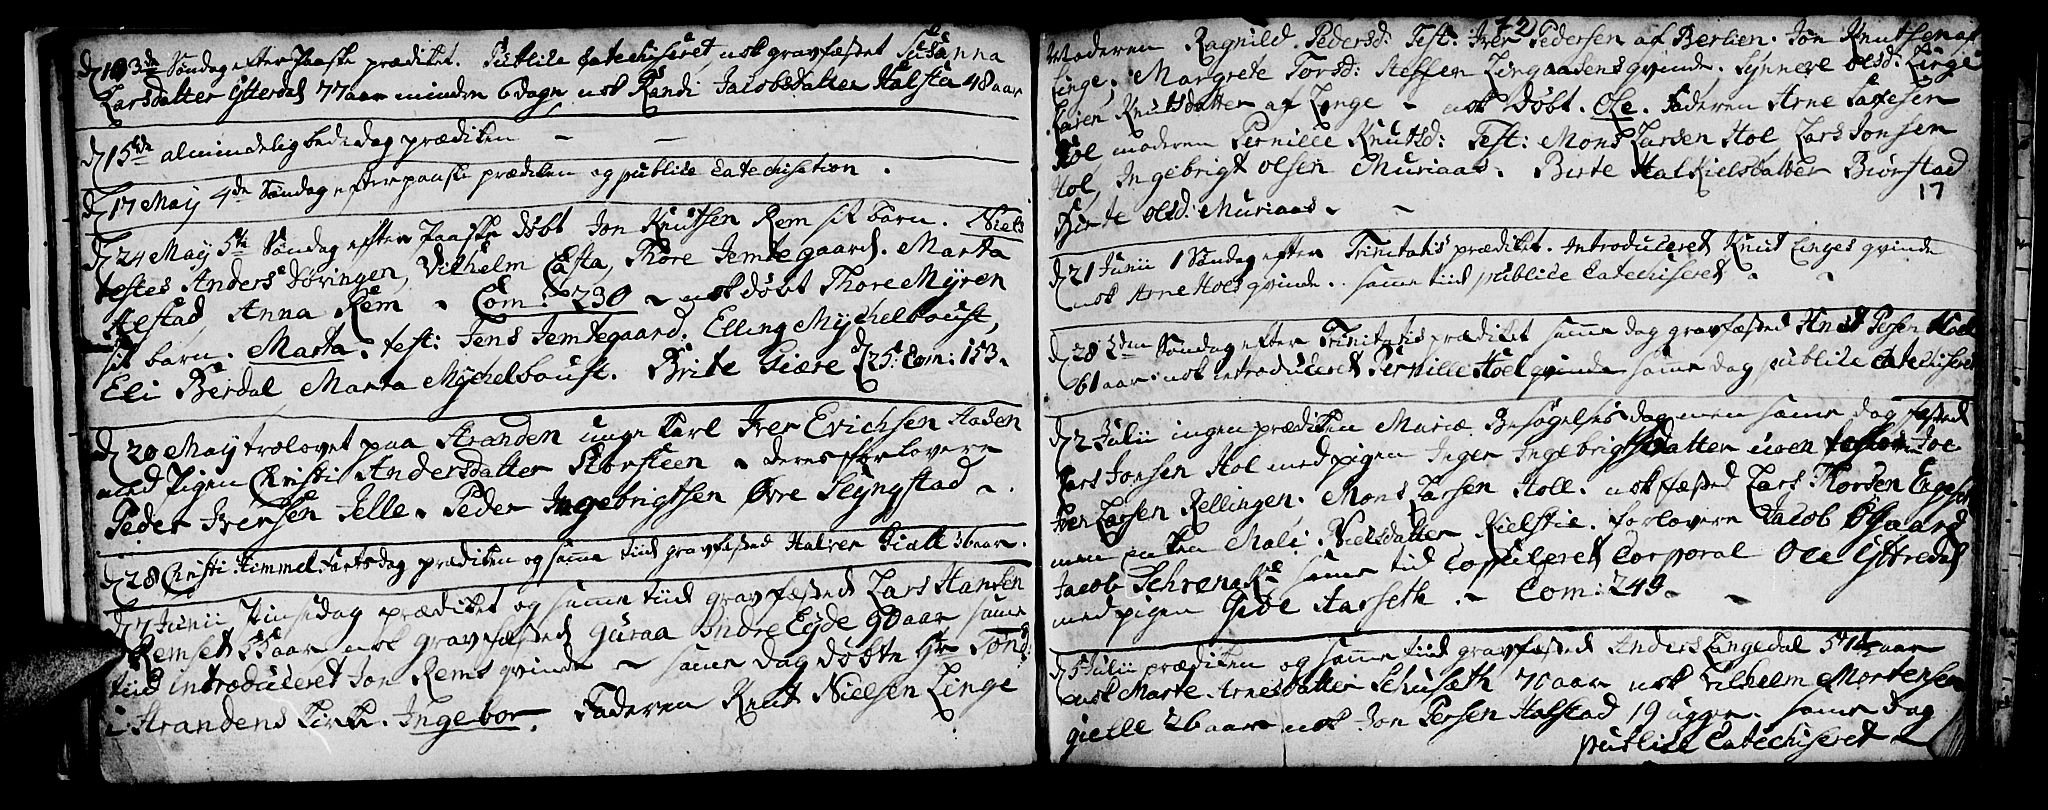 d 10 3de Søndag efter Paaske prædiket. Publice Catechiseret, nok gravfæstet Susanna
Larsdatter Ytterdal 77 aar minden 6 dage nok Randi Jacobsdatter Halsta 48 aar
d 15de almindelig bededag prædiken
d 17 May 4de Søndag efter paaske prædiken og publice Catechisation.
d 24 May 5te Søndag efter Paaske døbt Jon Knutsen Rem sit barn. Niels
testes Anders Døvingen, Vilhelm Casta, Thore Jemtegaard. Marta
Alstad, Anna Rem. Com: 230 nok døbt Thore Myren
sit barn. Marta. test: Jens Jemtegaard. Elling Mychelboust,
Eli Berdal Marta Mychelboust. Brite Giære d 25. Com: 153.
d 20 May trolovet paa Stranden unge Karl Iver Erichsen
med Pigen Christi Andersdatter Storsteen deres forlovere
Peder Iversen Selle. Peder Ingebrigtsen Øvre Slyngstad
d 28 Christi Himmelfartsdag prædiken og samme tiid gravfæsted Halvor Giælle 36 aar.
d 7 Junii, Pinsedag prædiket og samme tiid gravfæsted Lars Hansen
Remset 33 aar nok gravfæsted Guraa Indre Eyde 90 aar samme
tiid introduceret Jon Rems qvinde samme dag døbte Hr
i Strandens Kirke. Ingebor. Faderen Knut Nielsen Linge
12
Moderen Ragnild Pedersd: Test: Iver Pedersen af Berlien. Jon Knutsen af
Linge, Margrete Torsd: Steffen Lingaasens qvinde. Synneve Olsd: Linge
Karen Knutsdatter af Linge nok døbt. Ole. Faderen Arne
Hol moderen Pernille Knutsd: Test: Mons Larsen Hol Lars Jonsen
Hol, Ingebrigt Olsen Muriaas. Birte Halkielsdatter Biørstad
Birte Olsd: Muriaas.
17
d 21 Junii 1 Søndag efter Trinitatis prædiket. Introduceret Knut Linges qvinde
nok Arne Hoels qvinde. samme tiid publice Catechiseret.
d 28 2den Søndag efter Trinitatis prædiket samme dag gravfæsted Knut Persen Hoel
61 aar. nok introduceret Pernille Hoel qvinde samme dag publice Catechiseret
d 2 Julii ingen prædiken Mariæ Besøgelses dag men samme dag fæsted
Lars Jonsen Hol med pigen Inger Ingebrigtsdatter
Iver Larsen Rellingen. Mons Larsen Holl. nok fæsted Lars Thorsen
men enken Mali Nielsdatter Kielstie. forlovere Jacob
Jacob Schrenck samme tiid Copuleret Corporal Ole Ytterdal
med pigen Gide Aarseth. Com: 249.
d 5 Julii prædiken og samme tiid gravfæsted Anders Langedal aar
nok Marte Arnesdatter Schusæth 70 aar nok Vilhelm Mortensen
gielle 26 aar nok Jon Persen Halstad 19 uger. samme dag
publice Catechiseret